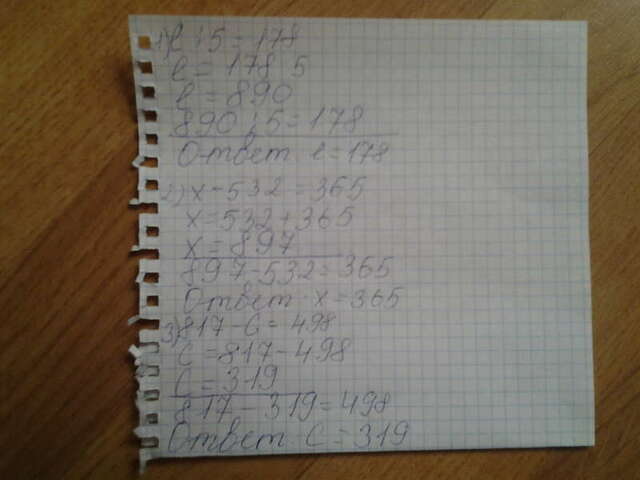 1) в : 5 = 178
в = 178 5
в = 890
890 : 5 = 178
Ответ в = 178
2) х - 532 = 365
х = 532 + 365
х = 897
897 - 532 = 365
Ответ х = 365
3) 817 - с = 498
с = 817 - 498
с = 319
817 - 319 = 498
Ответ с = 319